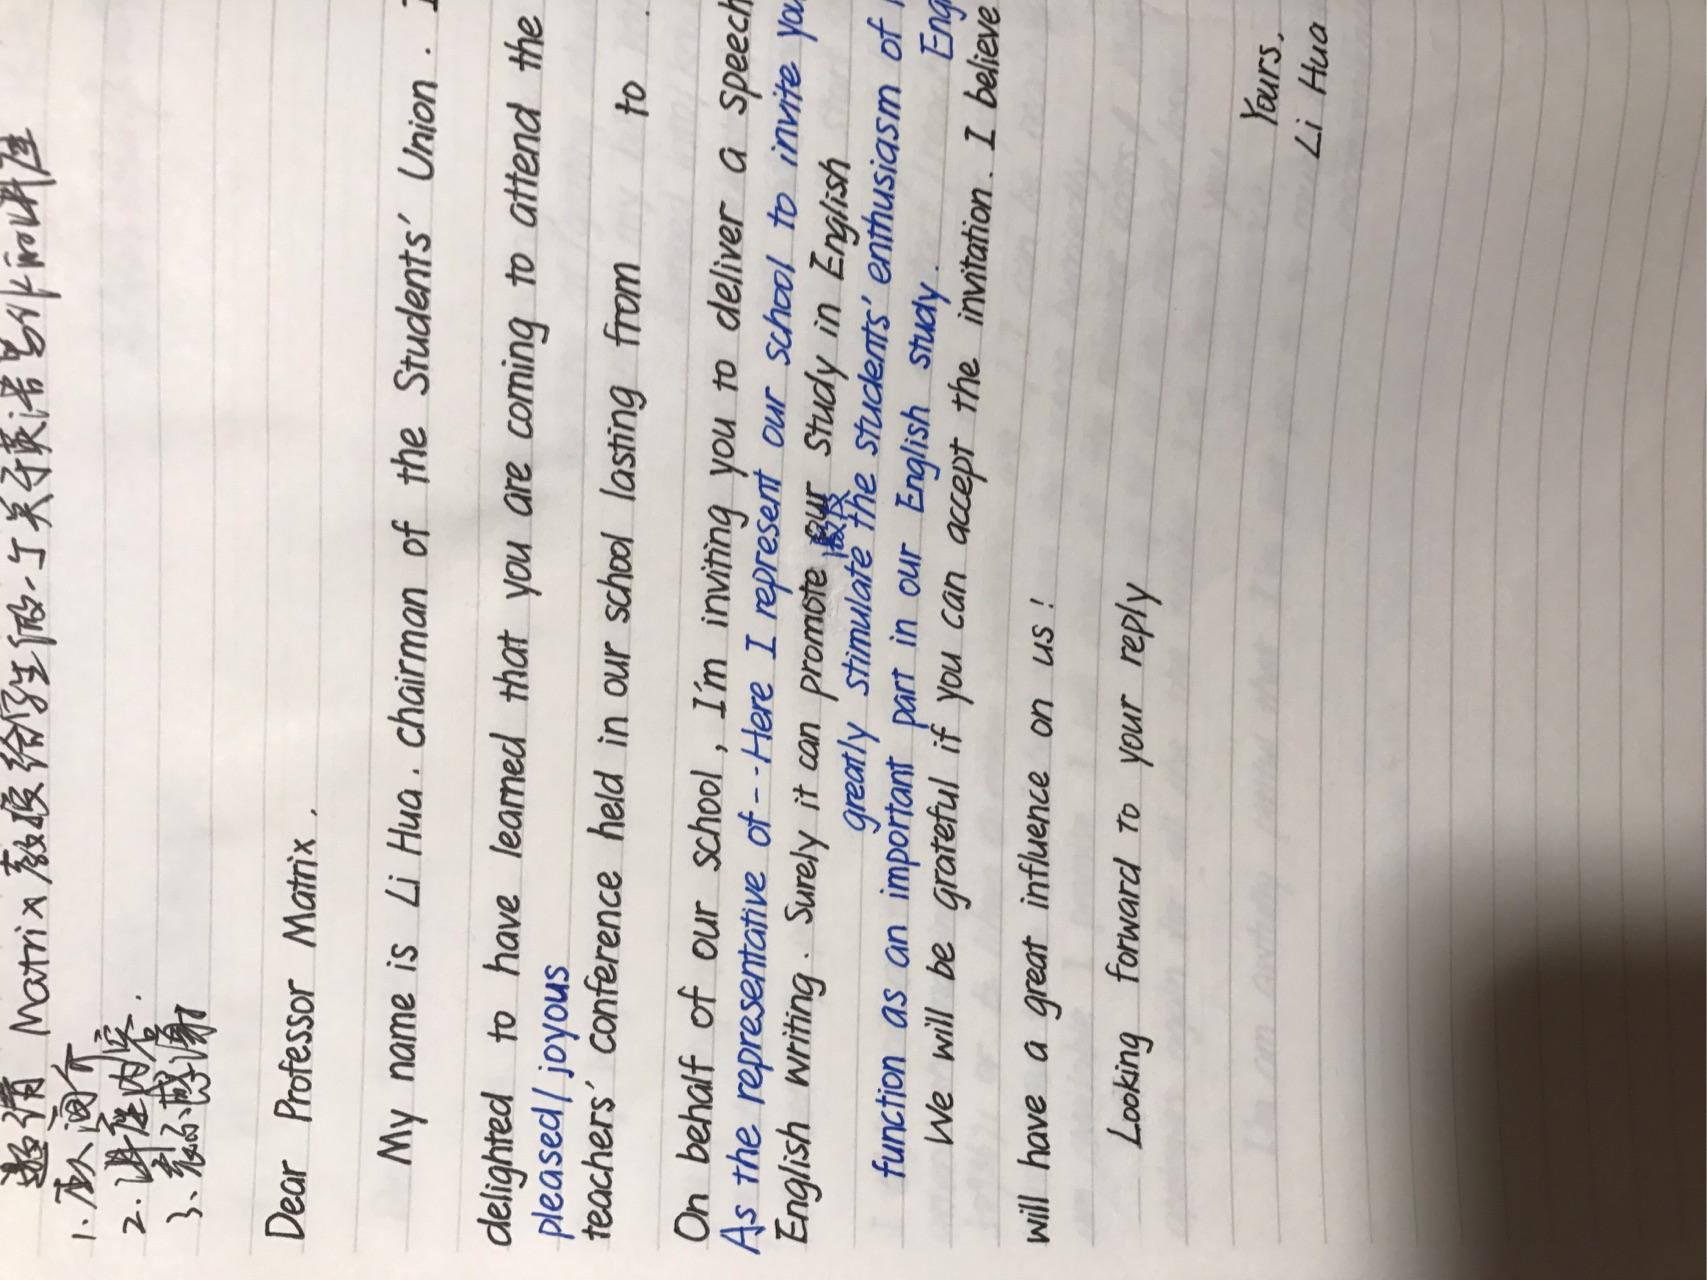 邀请 Matrix 教授给学生做一个关于英语写作的讲座
1. 个人简介
2. 讲座内容.
3. 表示感谢
Dear Professor Matrix,
My name is Li Hua. chairman of the Students' Union. I
delighted to have learned that you are coming to attend the
pleased/joyous
teachers' conference held in our school lasting from to .
On behalf of our school, I'm inviting you to deliver a speech
As the representative of -- Here I represent our school to invite you
English writing. Surely it can promote our study in English
greatly stimulate the students' enthusiasm of
function as an important part in our English study. Eng
We will be grateful if you can accept the invitation. I believe
will have a great influence on us!
Looking forward to your reply
Yours,
Li Hua